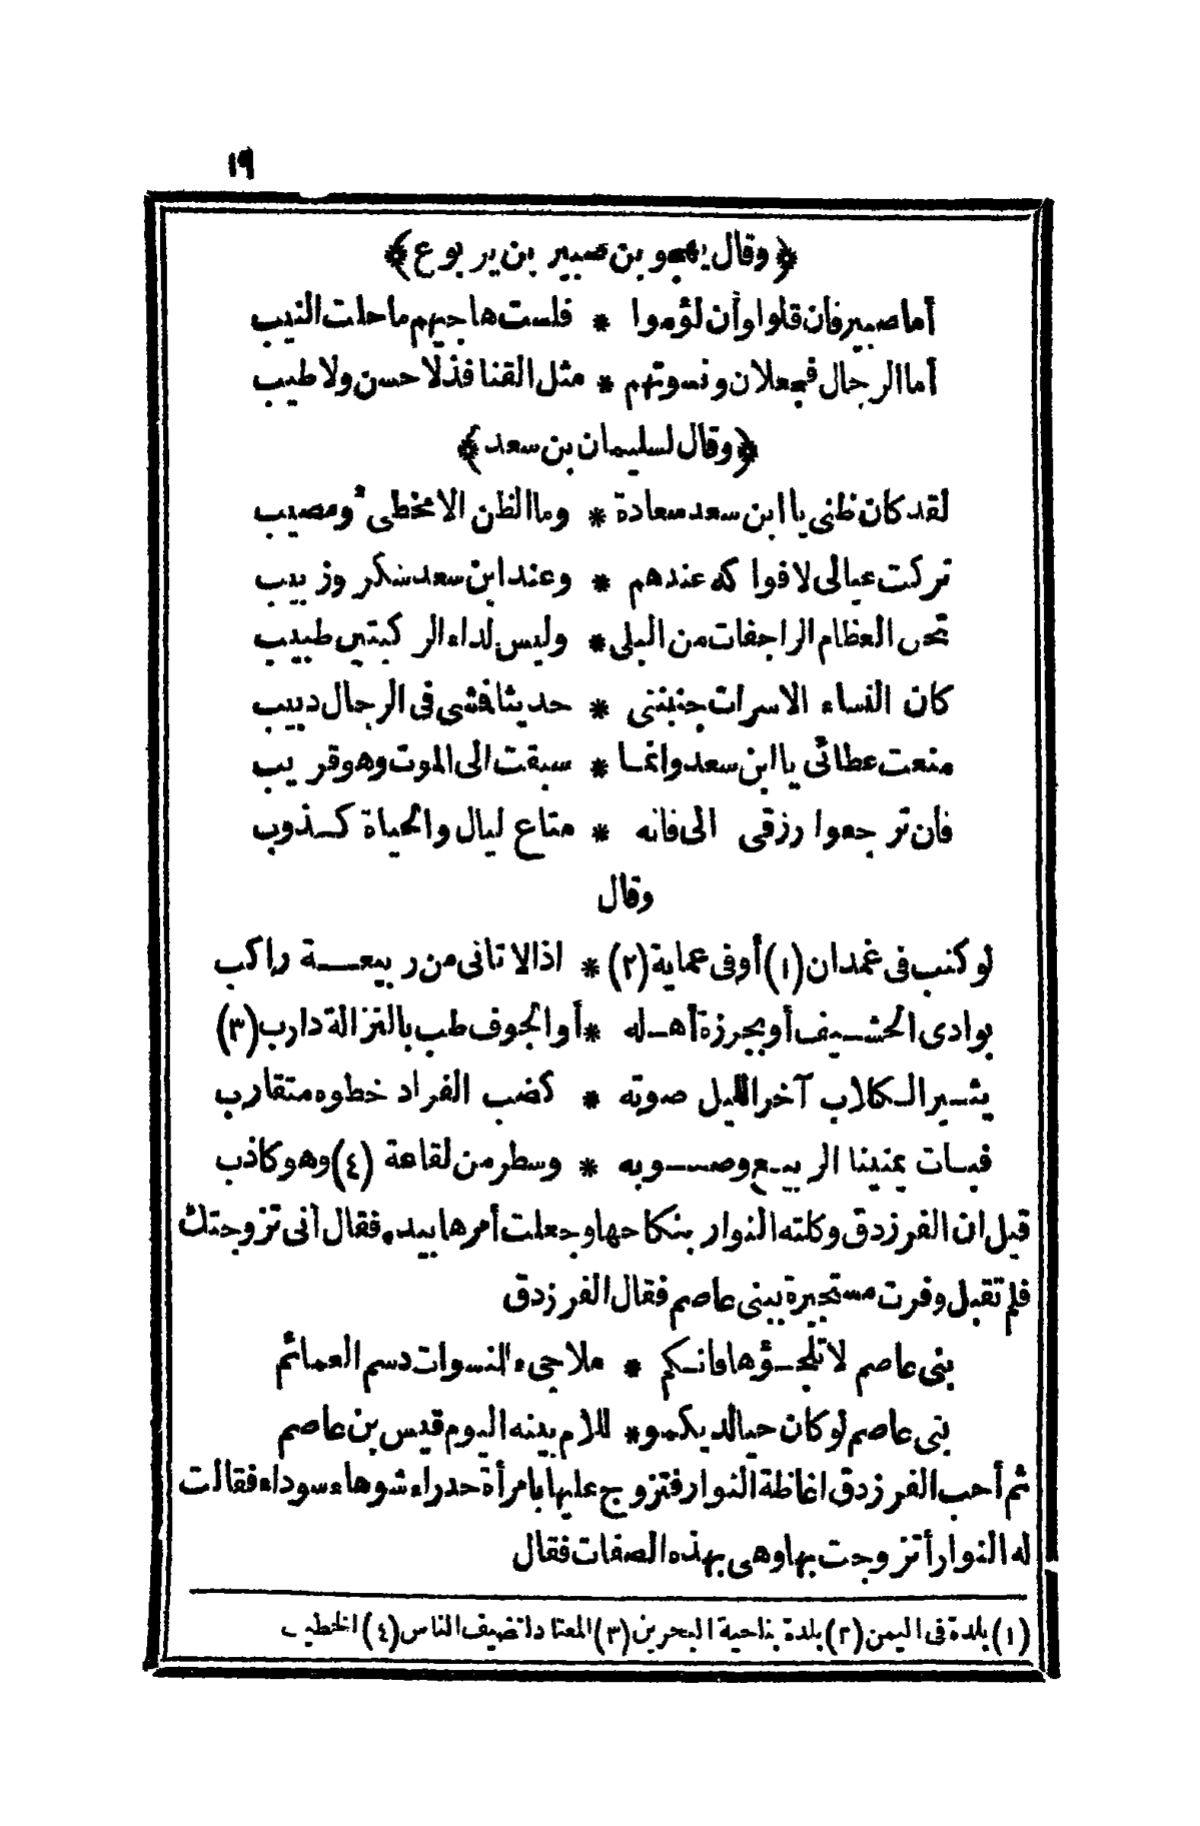 ١٩
﴿وقال يهجو بن صبير بن يربوع﴾
أما صبير فان قلوا وأن لؤموا * فلست هاجيهم ما حلت النيب
أما الرجال فجعلان ونسوتهم * مثل القنافذ لا حسن ولا طيب
﴿وقال لسليمان بن سعد﴾
لقد كان ظنى يا ابن سعد سعادة * وما الظن الا مخطئ ومصيب
تركت عيالى لا فواكه عندهم * وعند ابن سعد سكر وزبيب
تحنى العظام الراجفات من البلى * وليس لداء الركبتين طبيب
كان النساء الاسرات جنبننى * حديثا فشى فى الرجال دبيب
منعت عطائى يا ابن سعد وانما * سبقت الى الموت وهو قريب
فأن ترجعوا رزقى الى فانه * متاع ليال والحياة كذوب
وقال
لو كنب فى غمدان (١) أو فى عماية (٢) * اذا لا تانى من ربيعة راكب
بوادى الحشيف أو بجرزة أهله * أو الجوف طب بالنزالة دارب (٣)
يثير الكلاب آخر الليل صوته * كضب الفراد خطوه متقارب
فبات يمنينا الربيع وصوبه * وسطر من لقاعة (٤) وهو كاذب
قيل ان الفرزدق وكلته النوار بنكاحها وجعلت أمرها بيده فقال أنى تزوجتك
فلم تقبل وفرت مستجيرة ببنى عاصم فقال الفرزدق
بنى عاصم لا تلجؤها فانكم * ملاجىء النسوات دسم العمائم
بنى عاصم لو كان حيا لديكمو * للام بينه اليوم قيس بن عاصم
ثم أحب الفرزدق اغاظة النوار فتزوج عليها بامرأة حدراء شوهاء سوداء فقالت
له النوار أتزوجت بها وهى بهذه الصفات فقال
(١) بلدة فى اليمن (٢) بلدة بناحية البحرين (٣) المعتاد لتضيف الناس (٤) الخطيب